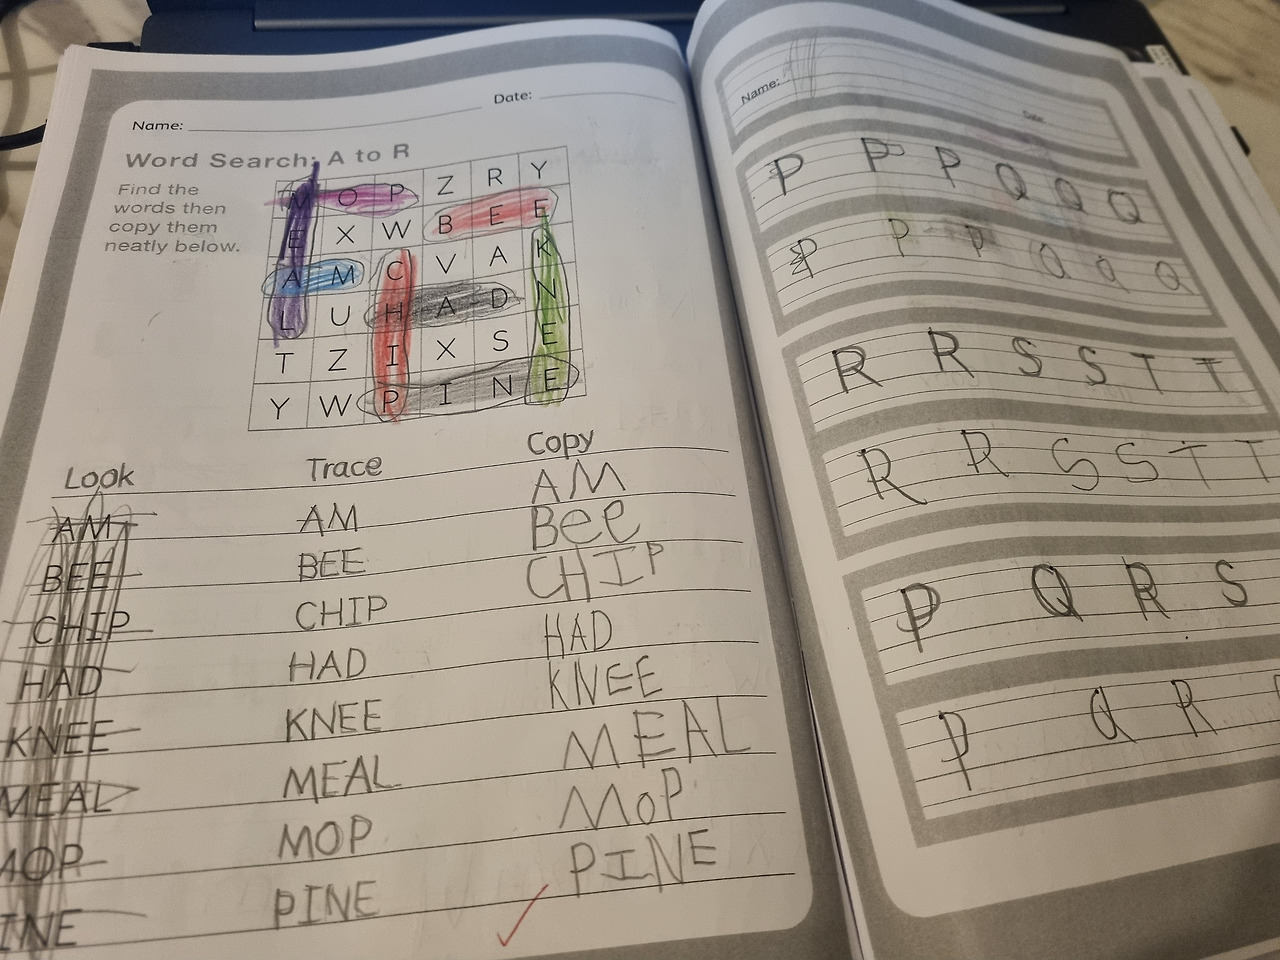 Name: Date:
Word Search: A to R
Find the
words then
copy them
neatly below.
M O P Z R Y
E X W B E E
A M C V A K
L U H A D N
T Z I X S E
Y W P I N E
Look Trace Copy
AM AM AM
BEE BEE Bee
CHIP CHIP CHIP
HAD HAD HAD
KNEE KNEE KNEE
MEAL MEAL MEAL
MOP MOP MoP
INE PINE PINE
Name:
Date
P P P Q Q Q
P P P Q Q Q
R R S S T T
R R S S T T
P Q R S
P Q R